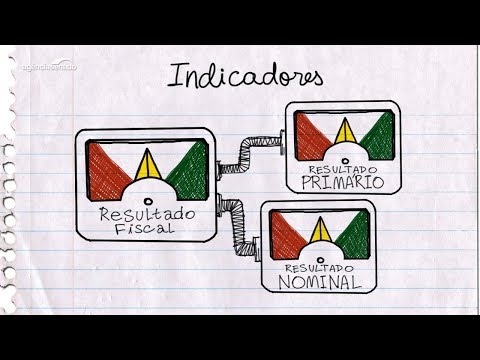 agênciasenado
Indicadores
Resultado
Fiscal
RESULTADO
PRIMÁRIO
RESULTADO
NOMINAL